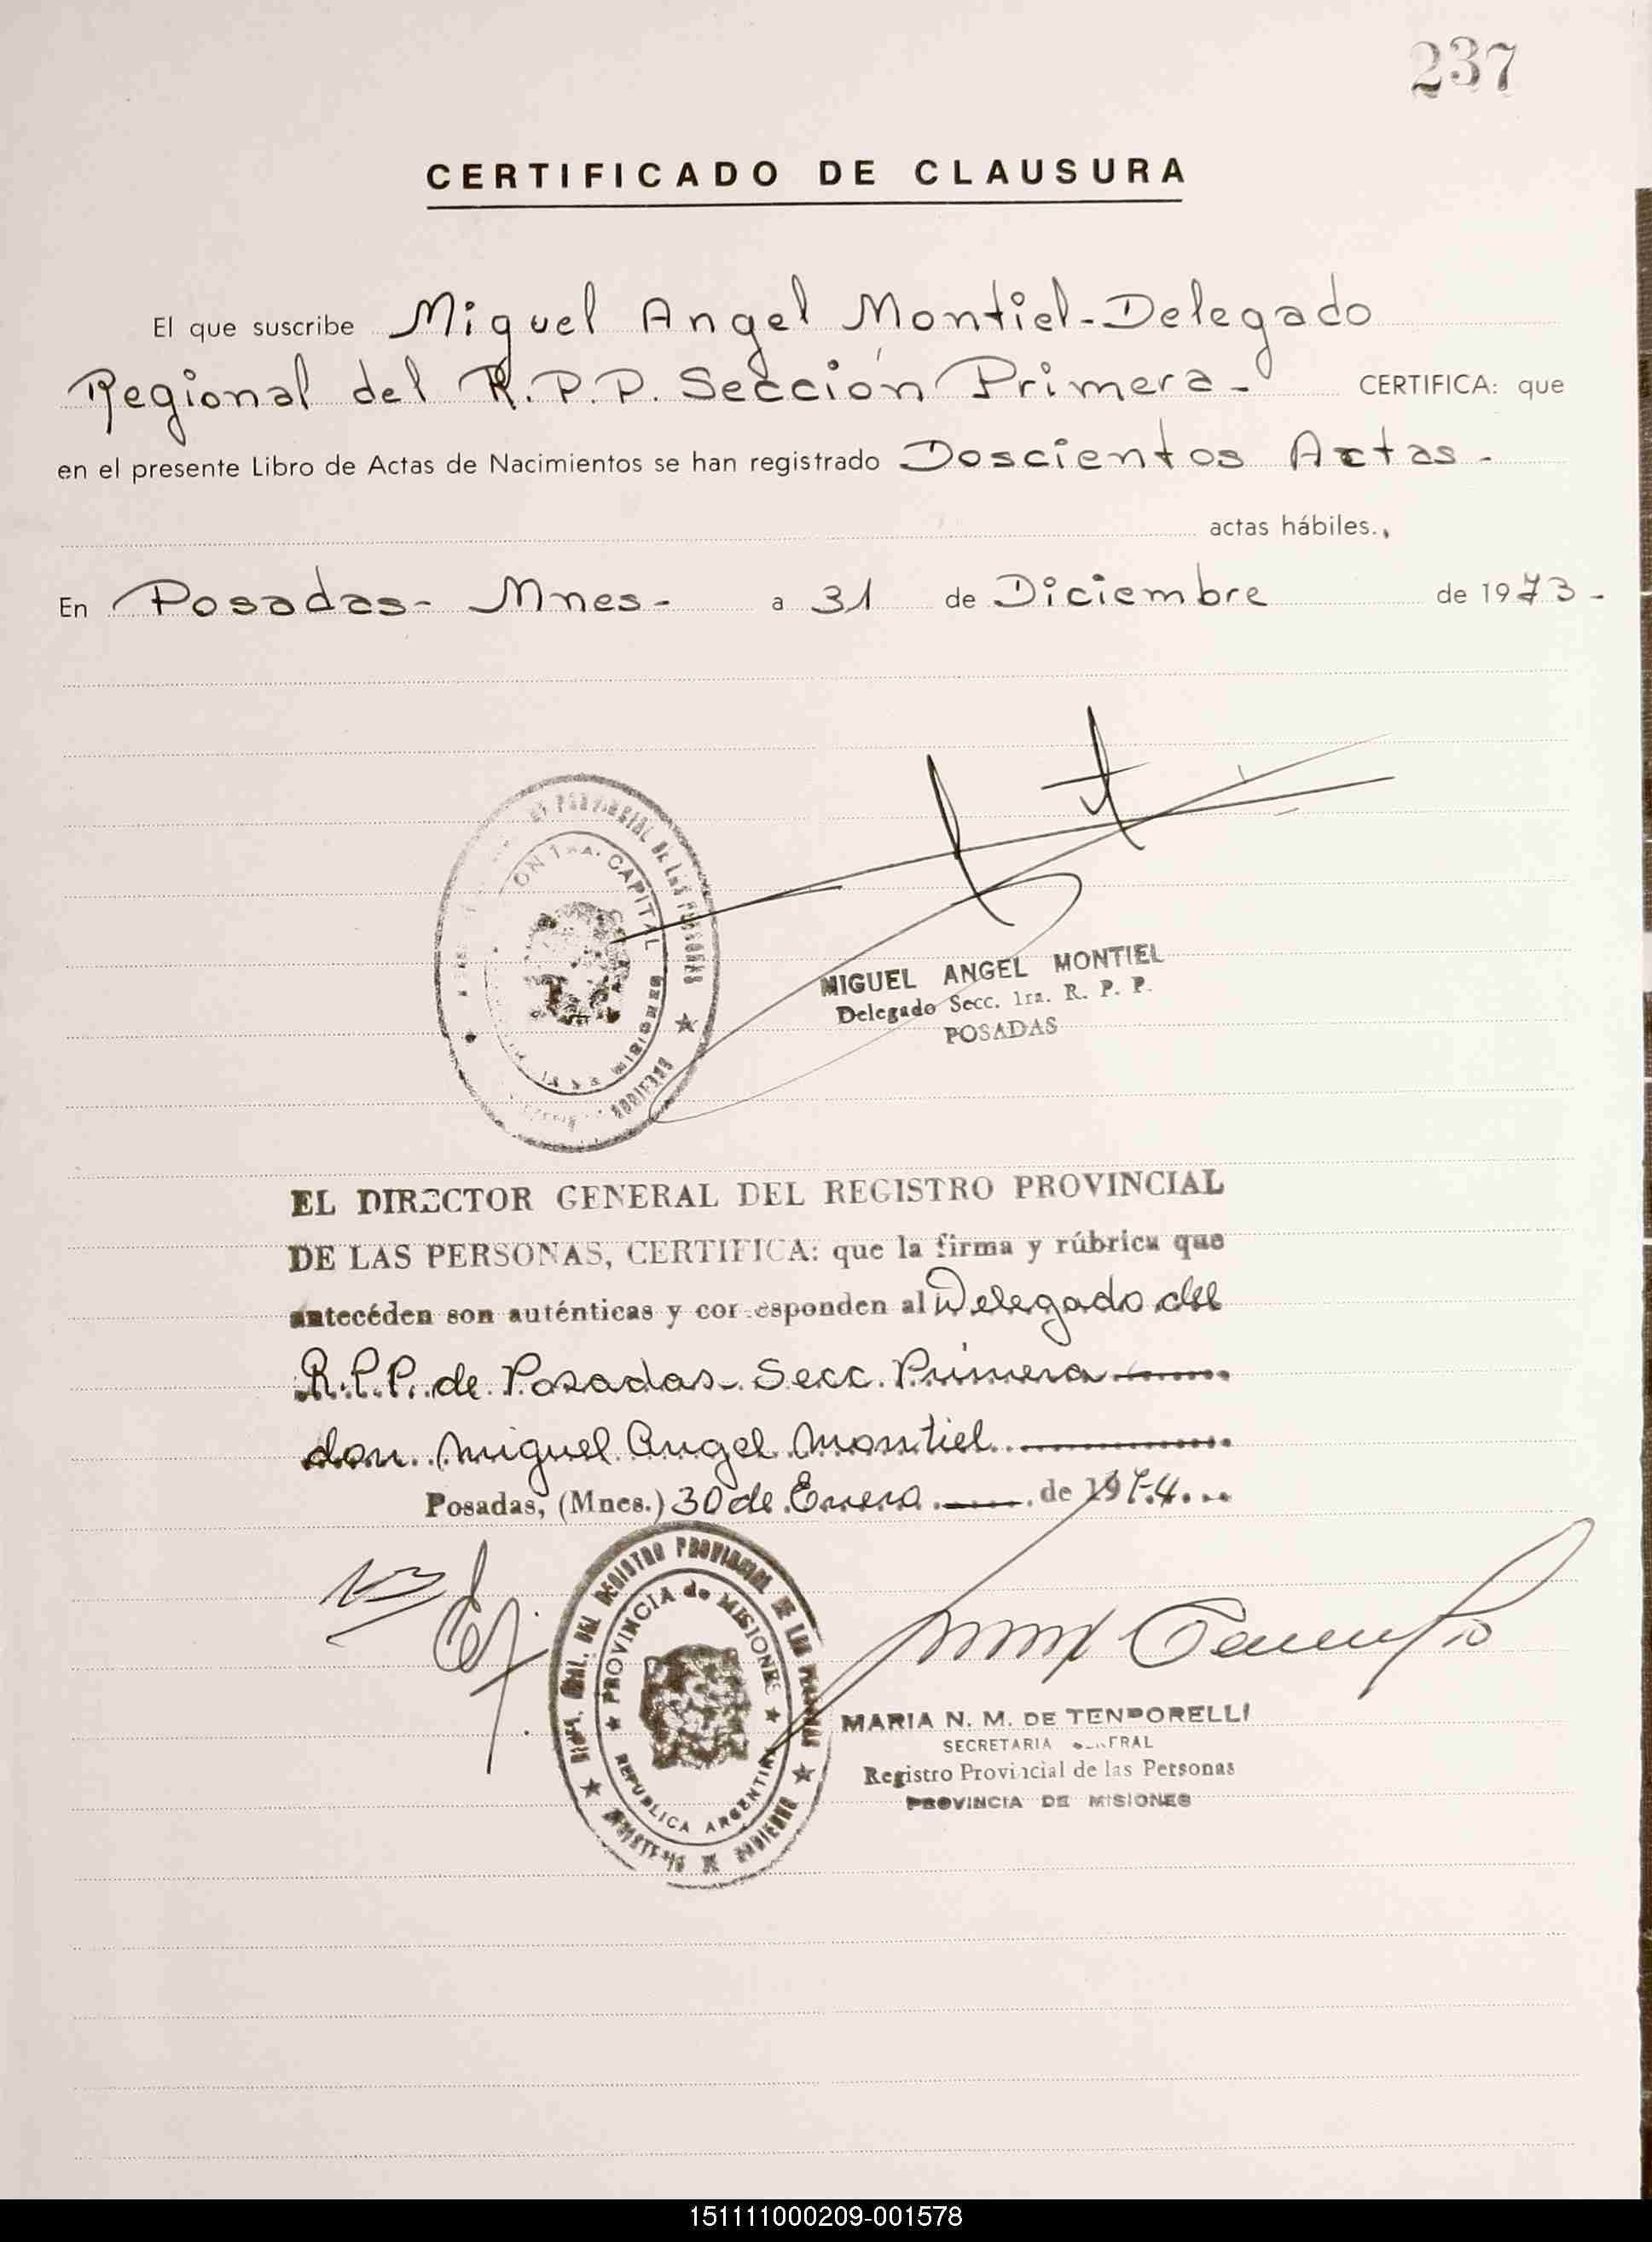 237
CERTIFICADO DE CLAUSURA
El que suscribe Miguel Angel Montiel-Delegado
Regional del R.P.P. Sección Primera- CERTIFICA: que
en el presente Libro de Actas de Nacimientos se han registrado Doscientos Actas-
actas hábiles.,
En Posadas- Mnes- a 31 de Diciembre de 1973-
PROVINCIAL DE LAS PERSONAS
CAPITAL
MIGUEL ANGEL MONTIEL
Delegado Secc. 1ra. R. P. P.
POSADAS
EL DIRECTOR GENERAL DEL REGISTRO PROVINCIAL
DE LAS PERSONAS, CERTIFICA: que la firma y rúbrica que
antecéden son auténticas y corresponden al Delegado del
R.P.P. de Posadas- Secc. Primera
don Miguel Angel Montiel
Posadas, (Mnes.) 30 de Enero de 1974
DEL REGISTRO PROVINCIAL DE LAS
PROVINCIA de MISIONES
REPUBLICA ARGENTINA
MARIA N. M. DE TEMPORELLI
SECRETARIA GENERAL
Registro Provincial de las Personas
PROVINCIA DE MISIONES
151111000209-001578